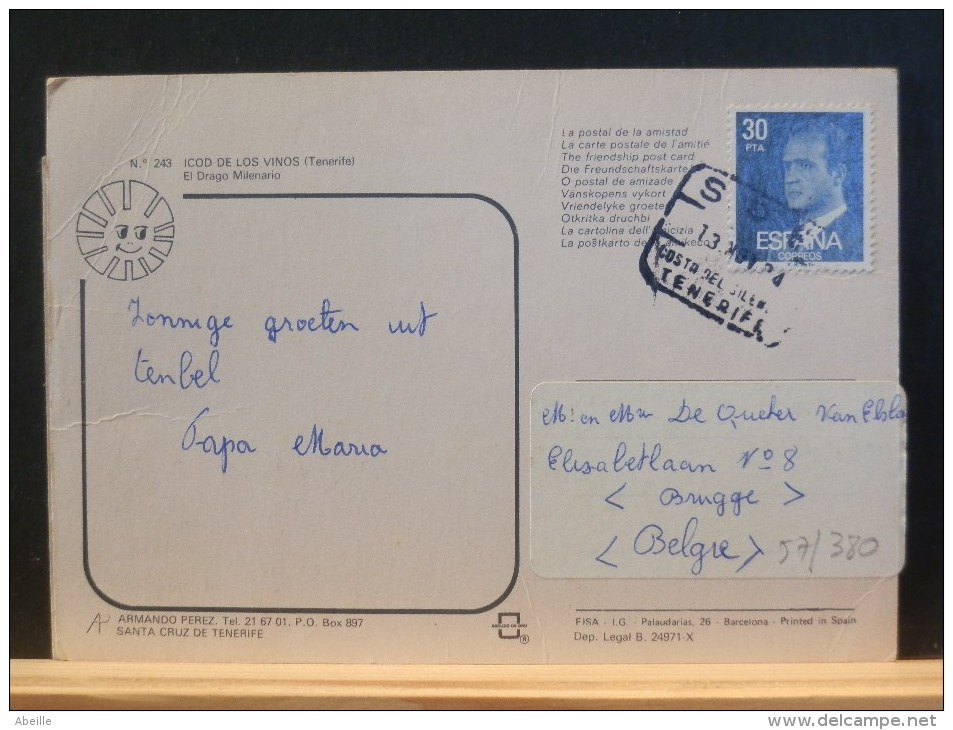 N.º 243 ICOD DE LOS VINOS (Tenerife)
El Drago Milenario
La postal de la amistad
La carte postale de l'amitié
The friendship post card
Die Freundschaftskarte
O postal de amizade
Vänskopens vykort
Vriendelyke groete
Otkritka druchbi
La cartolina dell'amicizia
La poŝtkarto de
30
PTA
ESPAÑA
CORREOS
13 NOV 84
COSTA DEL SILEN
TENERIFE
Zonnige groeten uit
tenbel
Papa Maria
Mr en Mvr De Queter Van Elsla
Elisabetlaan Nº 8
< Brugge >
< Belgie >
57/380
ARMANDO PEREZ. Tel. 21 67 01. P.O. Box 897
SANTA CRUZ DE TENERIFE
®
FISA - I.G. - Palaudarias, 26 - Barcelona - Printed in Spain
Dep. Legal B. 24971-X
Abeille
http://www.delcampe.net